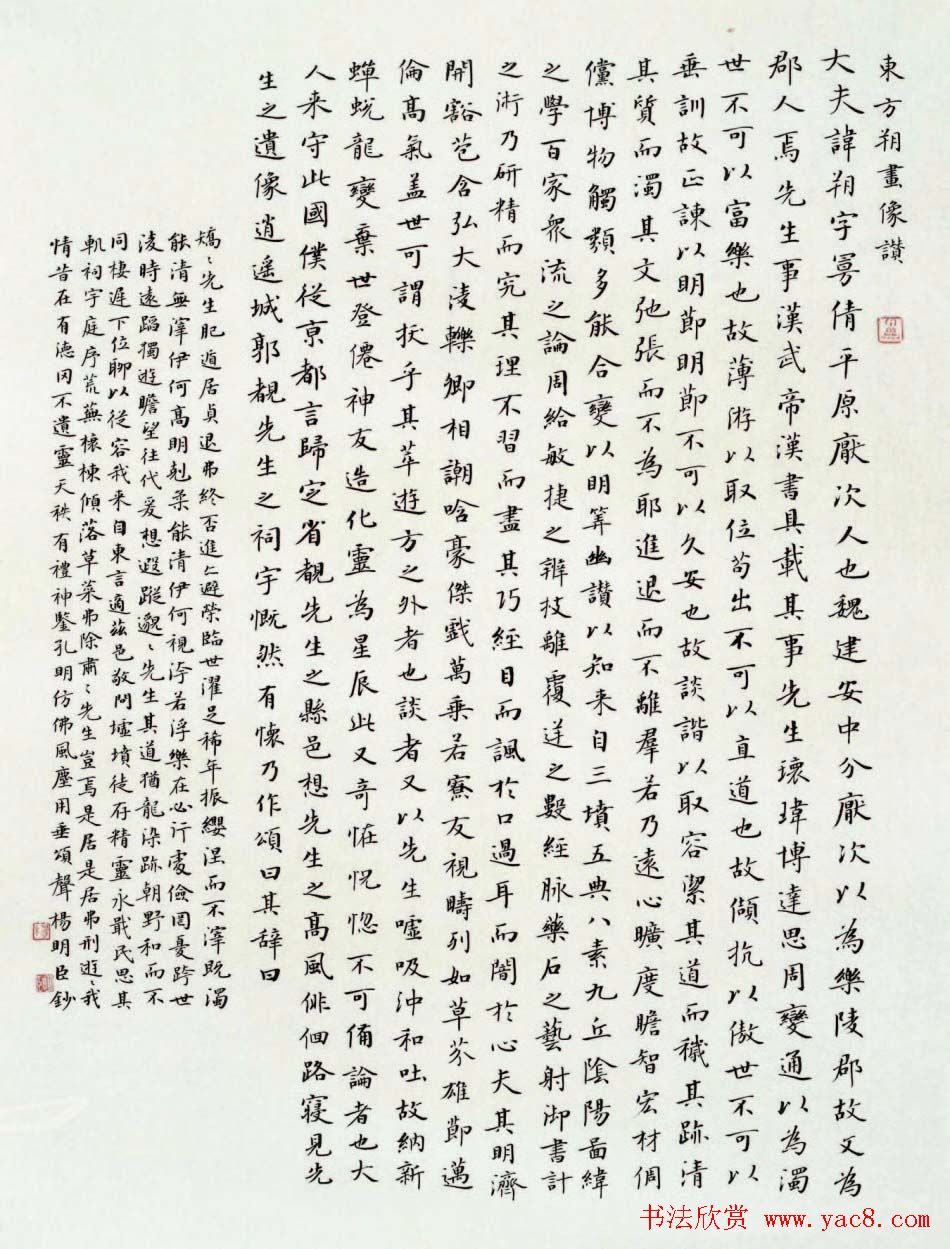 東方朔畫像讃
大夫諱朔字㝵倩平原厭次人也魏建安中分厭次以為樂陵郡故又為
郡人焉先生事漢武帝漢書具載其事先生瓌瑋博達思周變通以為濁
世不可以富樂也故薄游以取位苟出不可以直道也故傾抗以傲世不可以
垂訓故正諫以明節明節不可以久安也故談諧以取容潔其道而穢其跡清
其質而濁其文弛張而不為耶進退而不離羣若乃遠心曠度贍智宏材倜
儻博物觸類多能合變以明筭幽讃以知来自三墳五典八素九丘陰陽圖緯
之學百家衆流之論周給敏捷之辨枝離覆逆之數經脉藥石之藝射御書計
之術乃研精而究其理不習而盡其巧經目而諷於口過耳而闇於心夫其明濟
開豁苞含弘大淩轢卿相謿哈豪傑戲萬乗若寮友視疇列如草芥雄節邁
倫髙氣盖世可謂拔乎其萃遊方之外者也談者又以先生嘘吸沖和吐故納新
蟬蛻龍變棄世登僊神友造化靈為星辰此又奇恠怳惚不可俻論者也大
人来守此國僕從京都言歸定省覩先生之縣邑想先生之髙風俳佪路寝見先
生之遺像逍遥城郭覩先生之祠宇慨然有懐乃作頌曰其辞曰
矯〻先生肥遁居貞退弗終否進亦避榮臨世濯足稀年振纓涅而不滓既濁
能清無滓伊何髙明剋柔能清伊何視汙若浮樂在必行處儉罔憂跨世
淩時遠蹈獨遊瞻望往代爰想遐蹤邈〻先生其道猶龍染跡朝野和而不
同棲遲下位聊以従容我来自東言適兹邑敬問墟墳徒存精靈永戢民思其
軌祠宇庭序荒蕪榱棟傾落草莱弗除肅〻先生豈焉是居是居弗刑遊〻我
情昔在有徳罔不遺靈天秩有禮神鑒孔明仿佛風塵用垂頌聲楊明臣鈔
书法欣赏 www.yac8.com